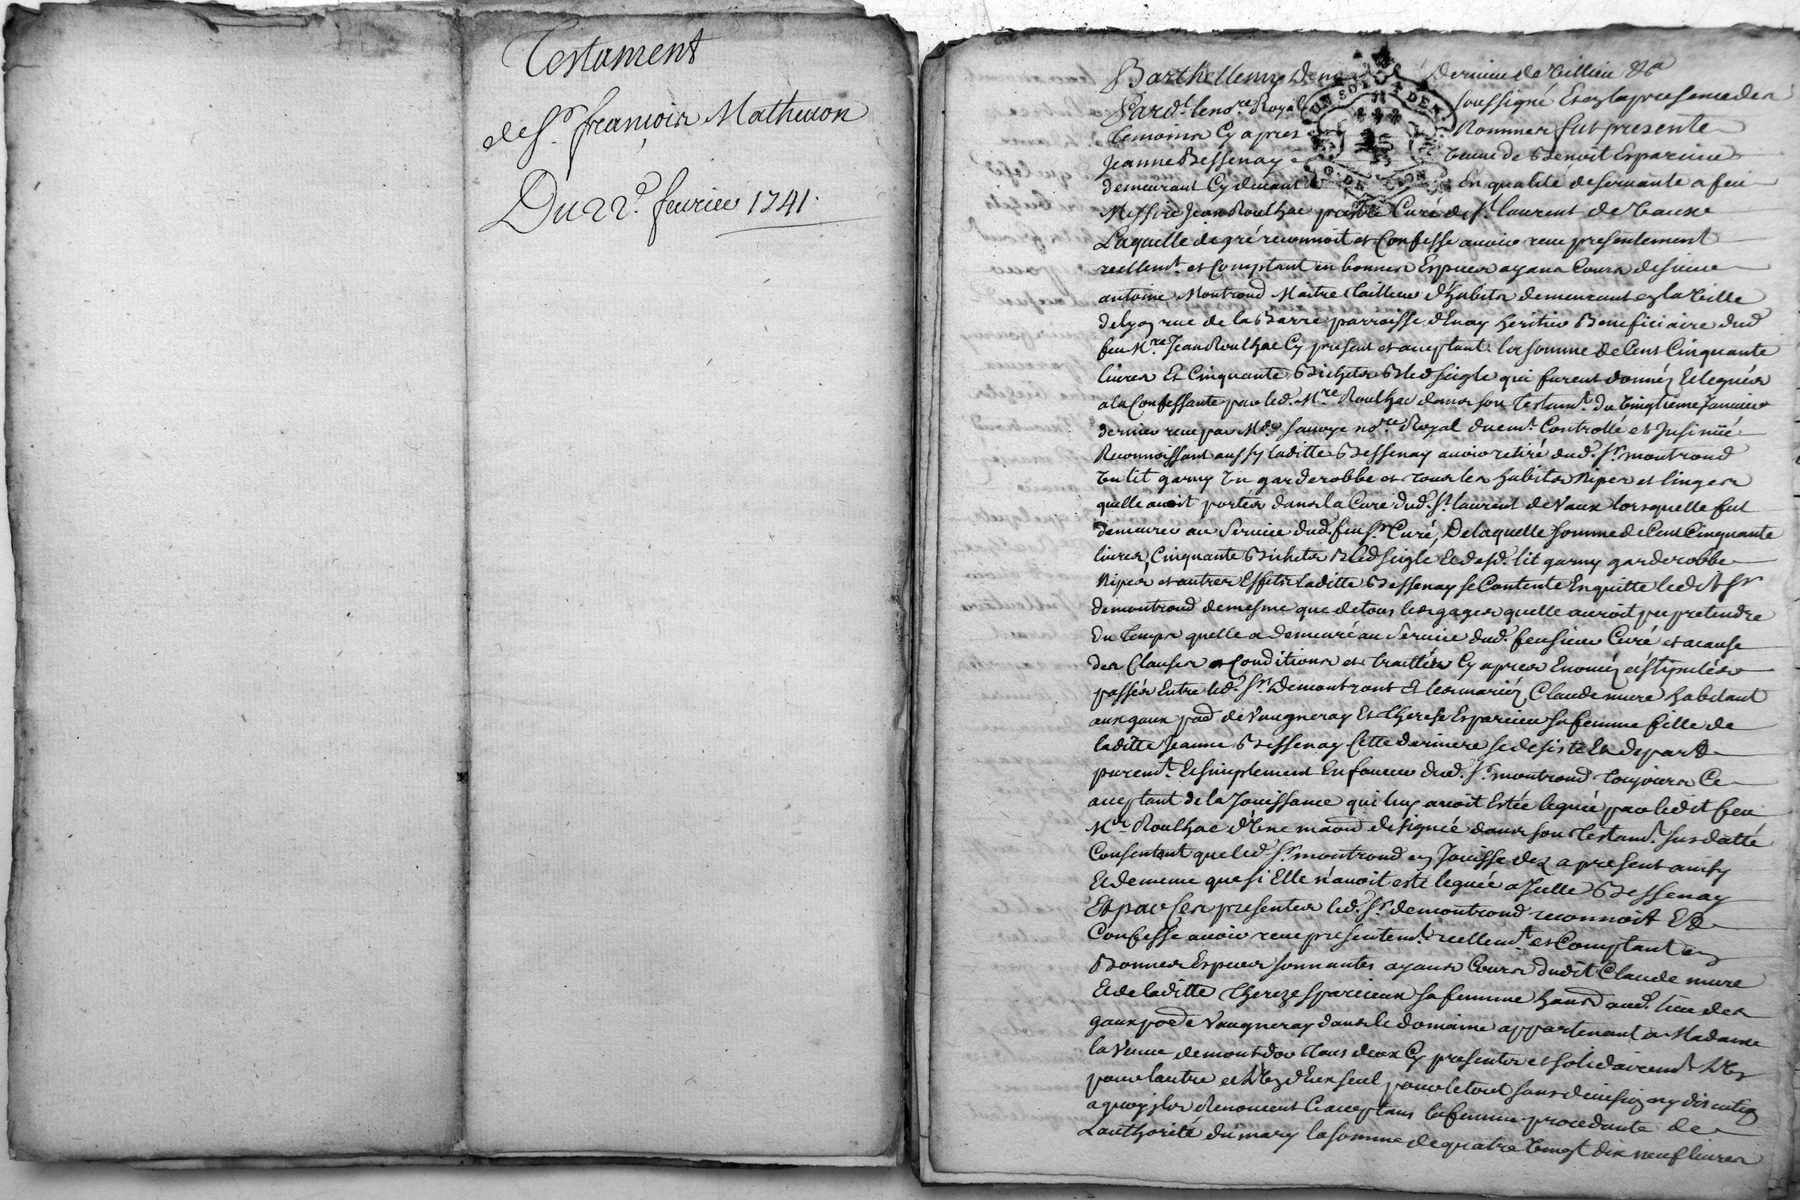 Testament
de Sr. françois Matheuon
Du 22e. feurier 1741.
UN SOL
DE LYON
Barthellemy Deriuieu de Villieu
Pardt. le nore. Royal soussigné Et en la presence des
temoins Cy apres Nommes fut presente
Jeanne Bessenay veuue de Benoit Esparcieu
demeurant Cy deuant En qualité de seruante a feu
Messire Jean Roulhac prestre Curé de St. laurent de Vaux
Laquelle de gré reconnoit et Confesse auoir receu presentement
reellemt. et Comptant en bonnes Especes ayans Cours de sieur
antoine Montrond Maitre tailleur d'habits demeurant en la Ville
de lyon rue de la Barre parroisse d'Enay heritier Beneficiaire dud
feu Mre. Jean Roulhac Cy present et acceptant la somme de Cent Cinquante
liures Et Cinquante Bichets Bled seigle qui furent donnéz Et legués
a la Confessante par led. Mre Roulhac dans son testamt. du Vingtieme Januier
dernier receu par Me. sauoye nore. Royal duemt. Controllé et Insinüé
Reconnoissant aussy laditte Bessenay auoir retiré dud. Sr. montrond
Un lit garny Un garderobbe et tous les habits Nipes et linges
quelle auoit portés dans la Cure dud. St. laurent de Vaux lorsquelle fut
demeurer au Seruice dud. feu Sr. Curé, De laquelle somme de Cent Cinquante
liures, Cinquante Bichets Bled seigle Et desd. lit garny garderobbe
Nipes, et autres Effets laditte Bessenay se Contente En quitte ledit Sr
demontrond de mesme que de tous les gages quelle auroit pu pretendre
Du temps quelle a demeuré au Seruice dud. feu sieur Curé et a cause
des Clauses Conditions et traittés Cy apres Enoncéz et stipulés
passés Entre led. Sr. Demontront Et les mariéz Claude mure habitant
aux gaux psse de Vaugneray Et therese Esparcieu sa femme fille de
laditte Jeanne Bessenay Cette derniere se desiste Et depard
puremt. Et simplement En faueur dud. Sr. montrond toujours Ce
acceptant de la Jouissance qui luy auoit Estée leguée par ledit feu
Mre Roulhac d'Une maon designée dans son testamt. susdatté
Consentant que led. Sr. montrond en Jouisse dez a present ainsy
Et de meme que si Elle n'auoit esté leguée a Jcelle Bessenay
Et par Ces presentes led. Sr. demontrond reconnoit Et
Confesse auoir receu presentemt. reellemt. et Comptant en
Bonnes Especes sonnantes ayans Cours dudit Claude mure
Et de laditte thereze sparcieux sa femme hants aud. lieu des
gaux psse de Vaugneray dans le domaine appartenant a Madame
la Veuue demontdor tous deux Cy presents et solidairemt. l'Un
pour l'autre et l'Un d'Eux seul pour le tout sans diuision ny discution
a quoy ils Renoncent Ce acceptans la femme procedante de
L'authorité du mary la somme de quatre Vingt dix neuf liures